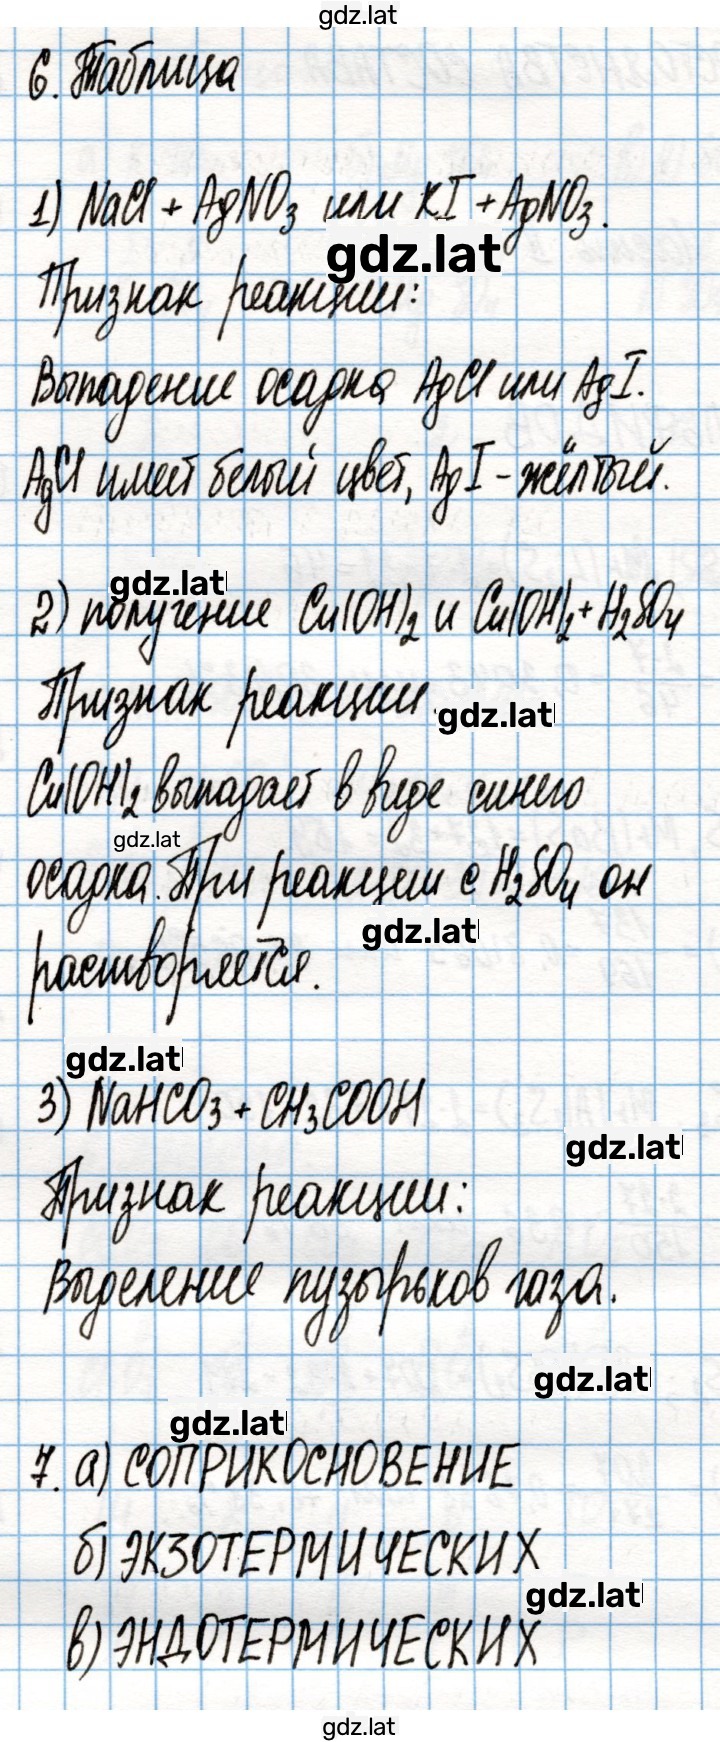 gdz.lat
6. Таблица
1) NaCl + AgNO₃ или KI + AgNO₃.
gdz.lat
Признак реакции:
Выпадение осадка AgCl или AgI.
AgCl имеет белый цвет, AgI - жёлтый.
gdz.lat
2) получение Cu(OH)₂ и Cu(OH)₂ + H₂SO₄
Признак реакции.
gdz.lat
Cu(OH)₂ выпадает в виде синего
gdz.lat
осадка. При реакции с H₂SO₄ он
gdz.lat
растворяется.
gdz.lat
3) NaHCO₃ + CH₃COOH
gdz.lat
Признак реакции:
Выделение пузырьков газа.
gdz.lat
gdz.lat
7. а) СОПРИКОСНОВЕНИЕ
б) ЭКЗОТЕРМИЧЕСКИХ
gdz.lat
в) ЭНДОТЕРМИЧЕСКИХ
gdz.lat